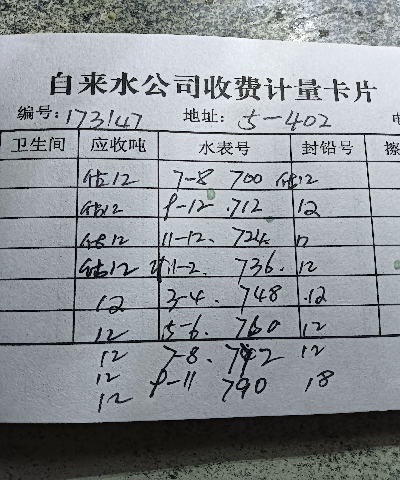 自来水公司收费计量卡片
编号: 173147 地址: 5-402
卫生间 应收吨 水表号 封铅号
估12 7-8 700 估12
估12 9-12 712 12
估12 11-12 724 12
估12 11-2 736 12
12 3-4 748 12
12 5-6 760 12
12 7-8 12
12 9-11 790 18
12